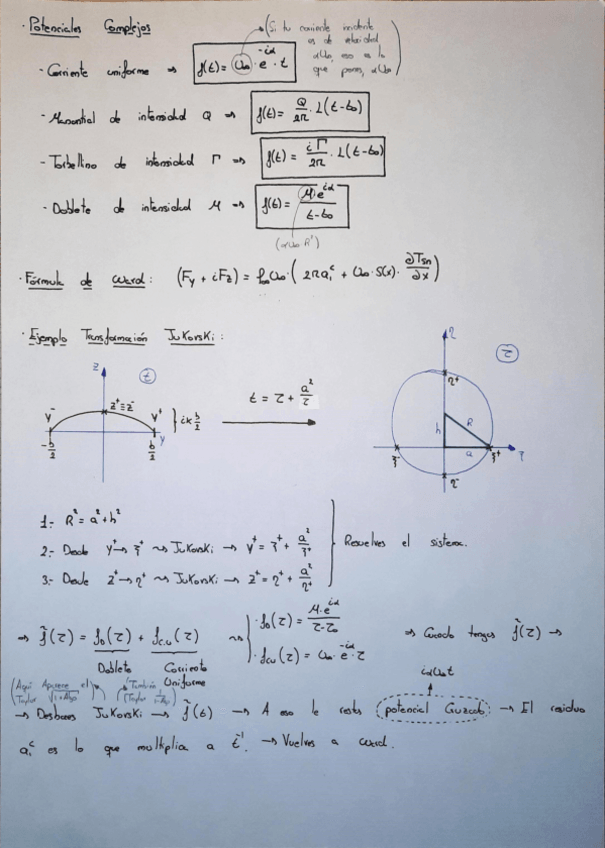 · Potenciales Complejos
(Si tu corriente incidente es de velocidad αU∞, eso es lo que pones, αU∞)
- Corriente uniforme ⇒ f(t) = U∞ · e^{-iα} · t
- Manantial de intensidad Q ⇒ f(t) = Q/2π · L(t-t₀)
- Torbellino de intensidad Γ ⇒ f(t) = iΓ/2π · L(t-t₀)
- Doblete de intensidad M ⇒ f(t) = M e^{iα}/t-t₀
(αU∞ R²)
· Fórmula de Ward: (Fy + iFz) = ρ∞U∞ · (2πa₁ᶜ + U∞ · S(x) · ∂Tsn/∂x)
· Ejemplo Transformación Jukovski:
z
t
y⁻ z⁺≡z⁻ y⁺
y
-b/2 b/2
} ik b/2
t = τ + a²/τ
η
τ
η⁺
h R
a
ξ⁻ ξ⁺
η⁻
1.- R² = a² + h²
2.- Desde y⁺ → ξ⁺ ⇝ Jukovski → y⁺ = ξ⁺ + a²/ξ⁺
3.- Desde z⁺ → η⁺ ⇝ Jukovski → z⁺ = η⁺ + a²/η⁺
Resuelves el sistema.
⇒ f̃(τ) = f_D(τ) + f_{C.U}(τ) ⇝ · f_D(τ) = M·e^{iα}/τ-τ₀ ⇒ Cuando tengas f̃(τ) →
Doblete Corriente Uniforme
· f_{CU}(τ) = U∞ · e^{-iα} · τ
(Aquí Aparece el Taylor √1+Algo) (También Taylor 1/1-Algo)
iαU∞t
→ Deshaces Jukovski → f̃(t) → A eso le restas (potencial → El residuo
a₁ᶜ es lo que multiplica a t⁻¹. → Vuelves a Ward.